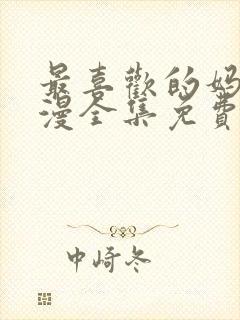 最喜歡的妈
漫全集免費
中崎冬